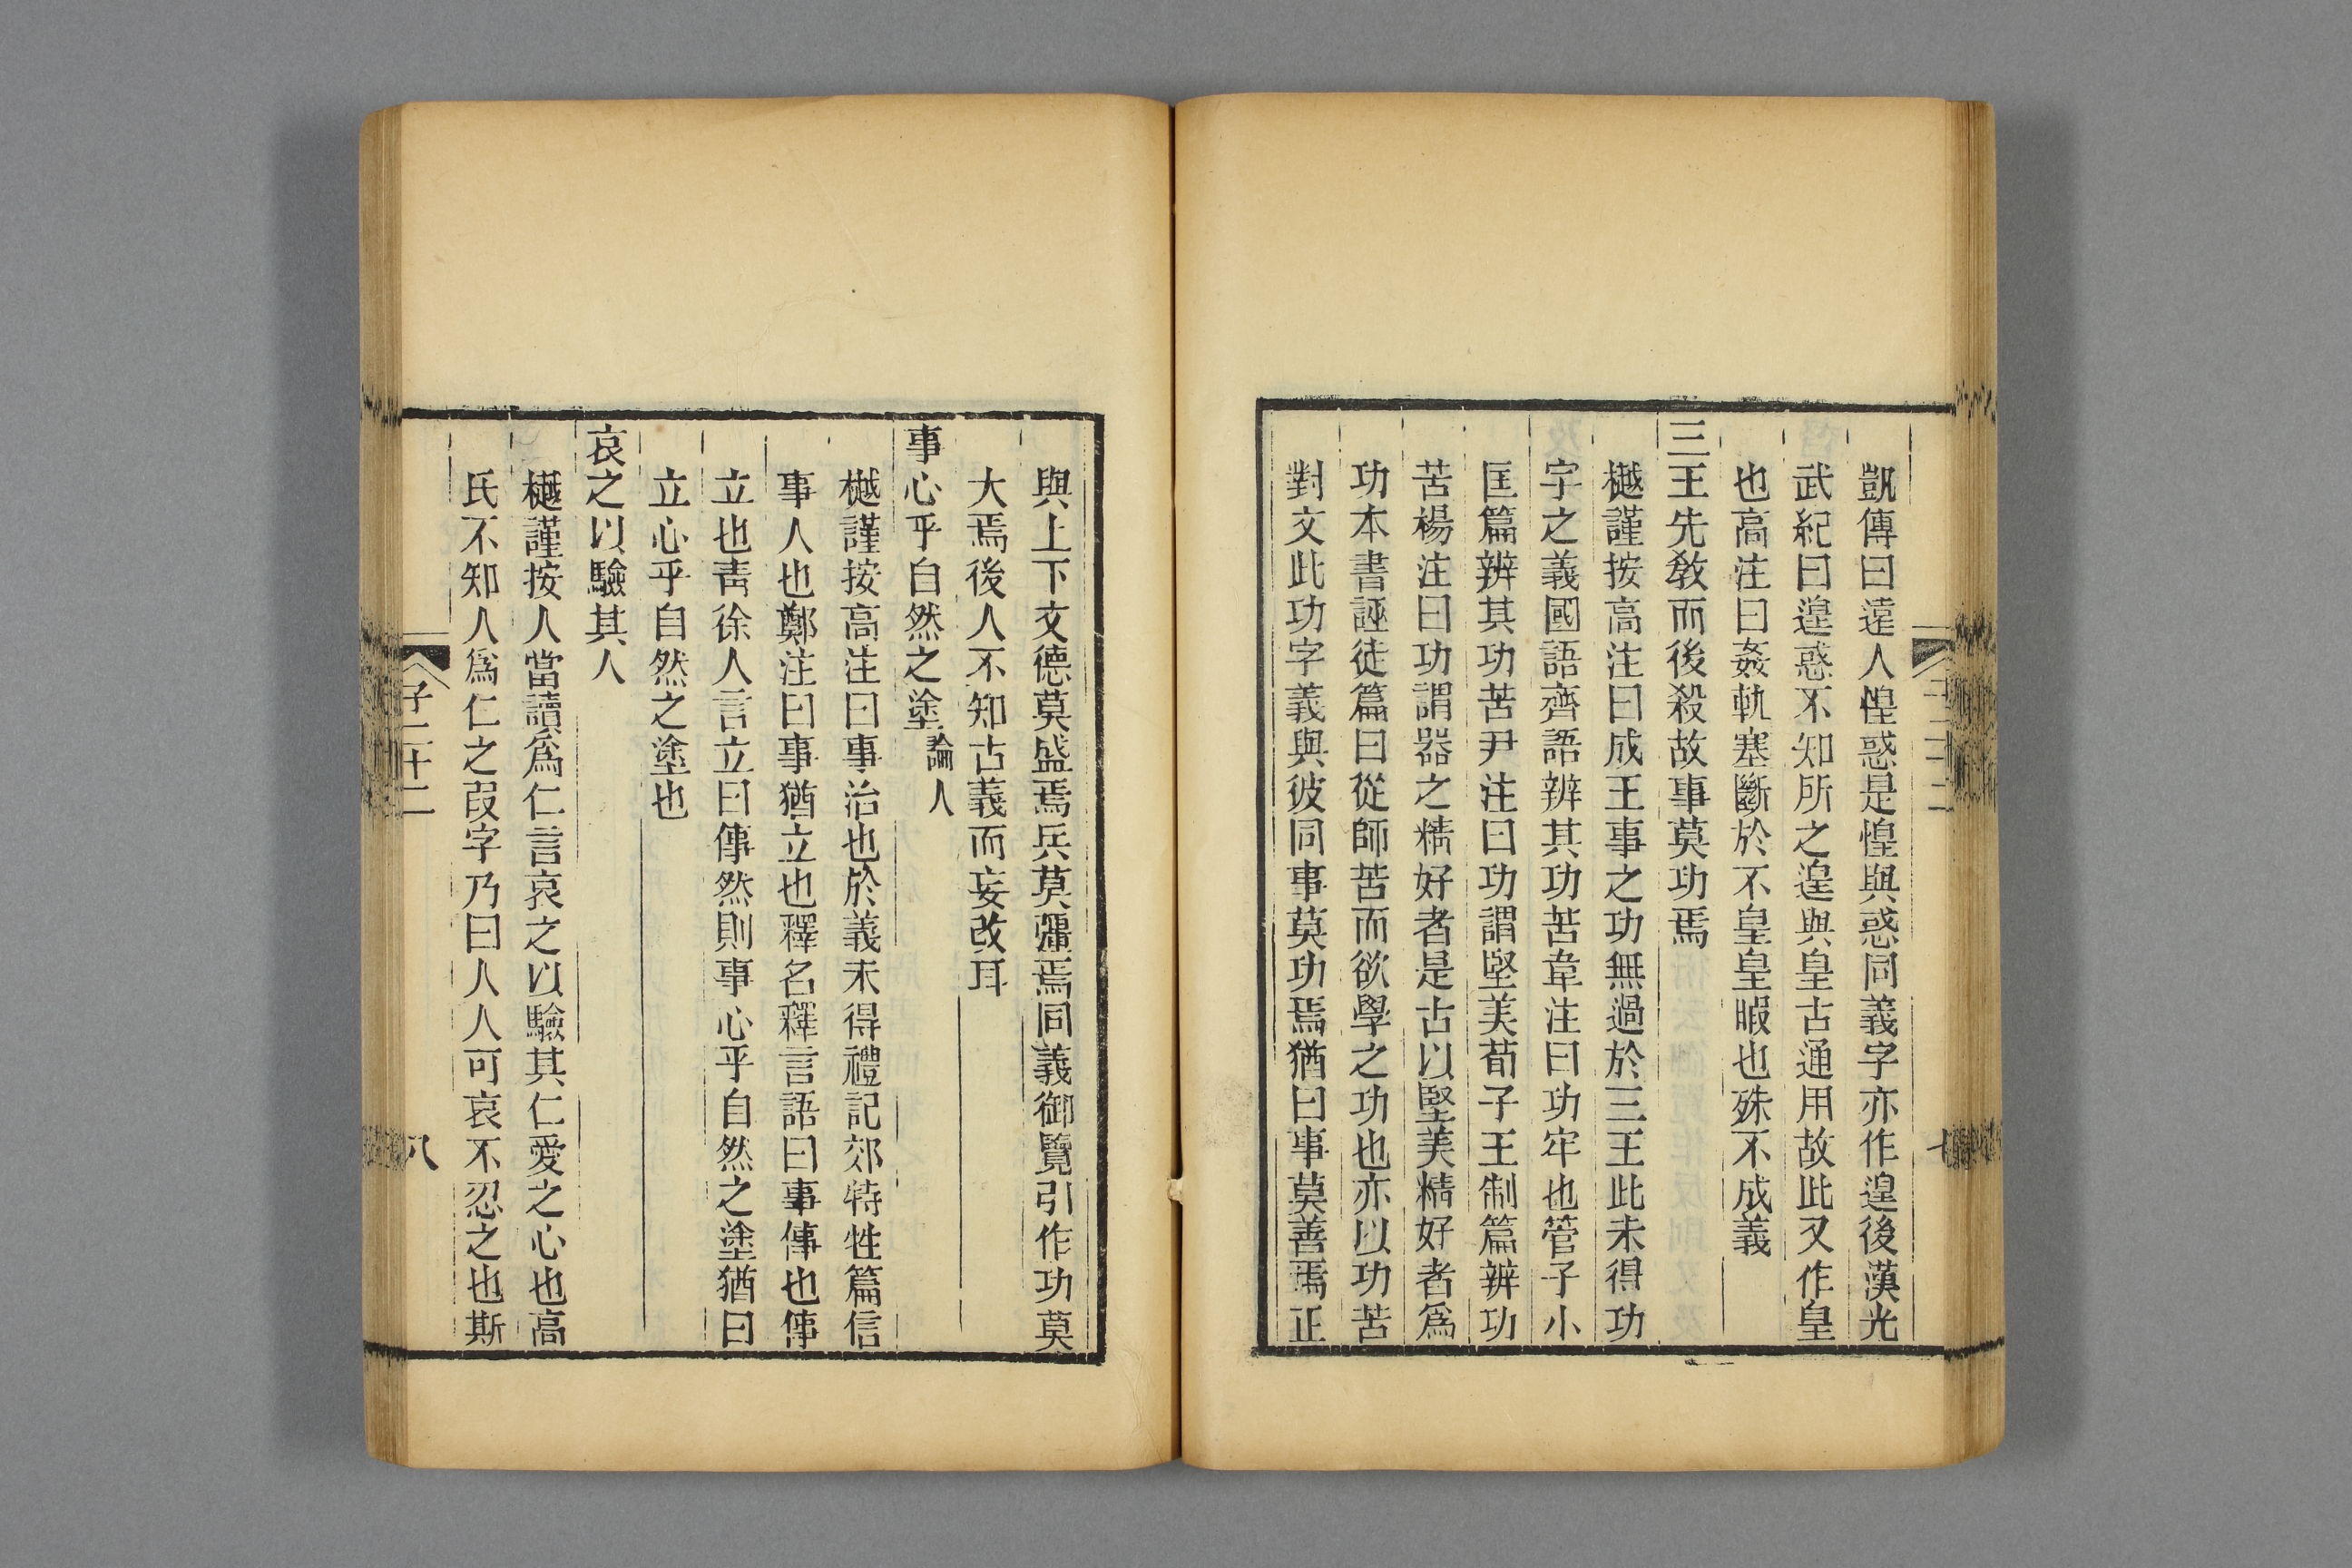 凱傳曰遠人惶惑是惶與惑同義字亦作遑後漢光
武紀曰遑惑不知所之遑與皇古通用故此又作皇
也高注曰姦軌塞斷於不皇皇暇也殊不成義
三王先敎而後殺故事莫功焉
樾謹按高注曰成王事之功無過於三王此未得功
字之義國語齊語辨其功苦韋注曰功牢也管子小
匡篇辨其功苦尹注曰功謂堅美荀子王制篇辨功
苦楊注曰功謂器之精好者是古以堅美精好者爲
功本書誣徒篇曰從師苦而欲學之功也亦以功苦
對文此功字義與彼同事莫功焉猶曰事莫善焉正
七
與上下文德莫盛焉兵莫彊焉同義御覽引作功莫
大焉後人不知古義而妄改耳
事心乎自然之塗論人
樾謹按高注曰事治也於義未得禮記郊特牲篇信
事人也鄭注曰事猶立也釋名釋言語曰事倳也倳
立也靑徐人言立曰倳然則事心乎自然之塗猶曰
立心乎自然之塗也
哀之以驗其人
樾謹按人當讀爲仁言哀之以驗其仁愛之心也高
氏不知人爲仁之叚字乃曰人人可哀不忍之也斯
子二十二
八